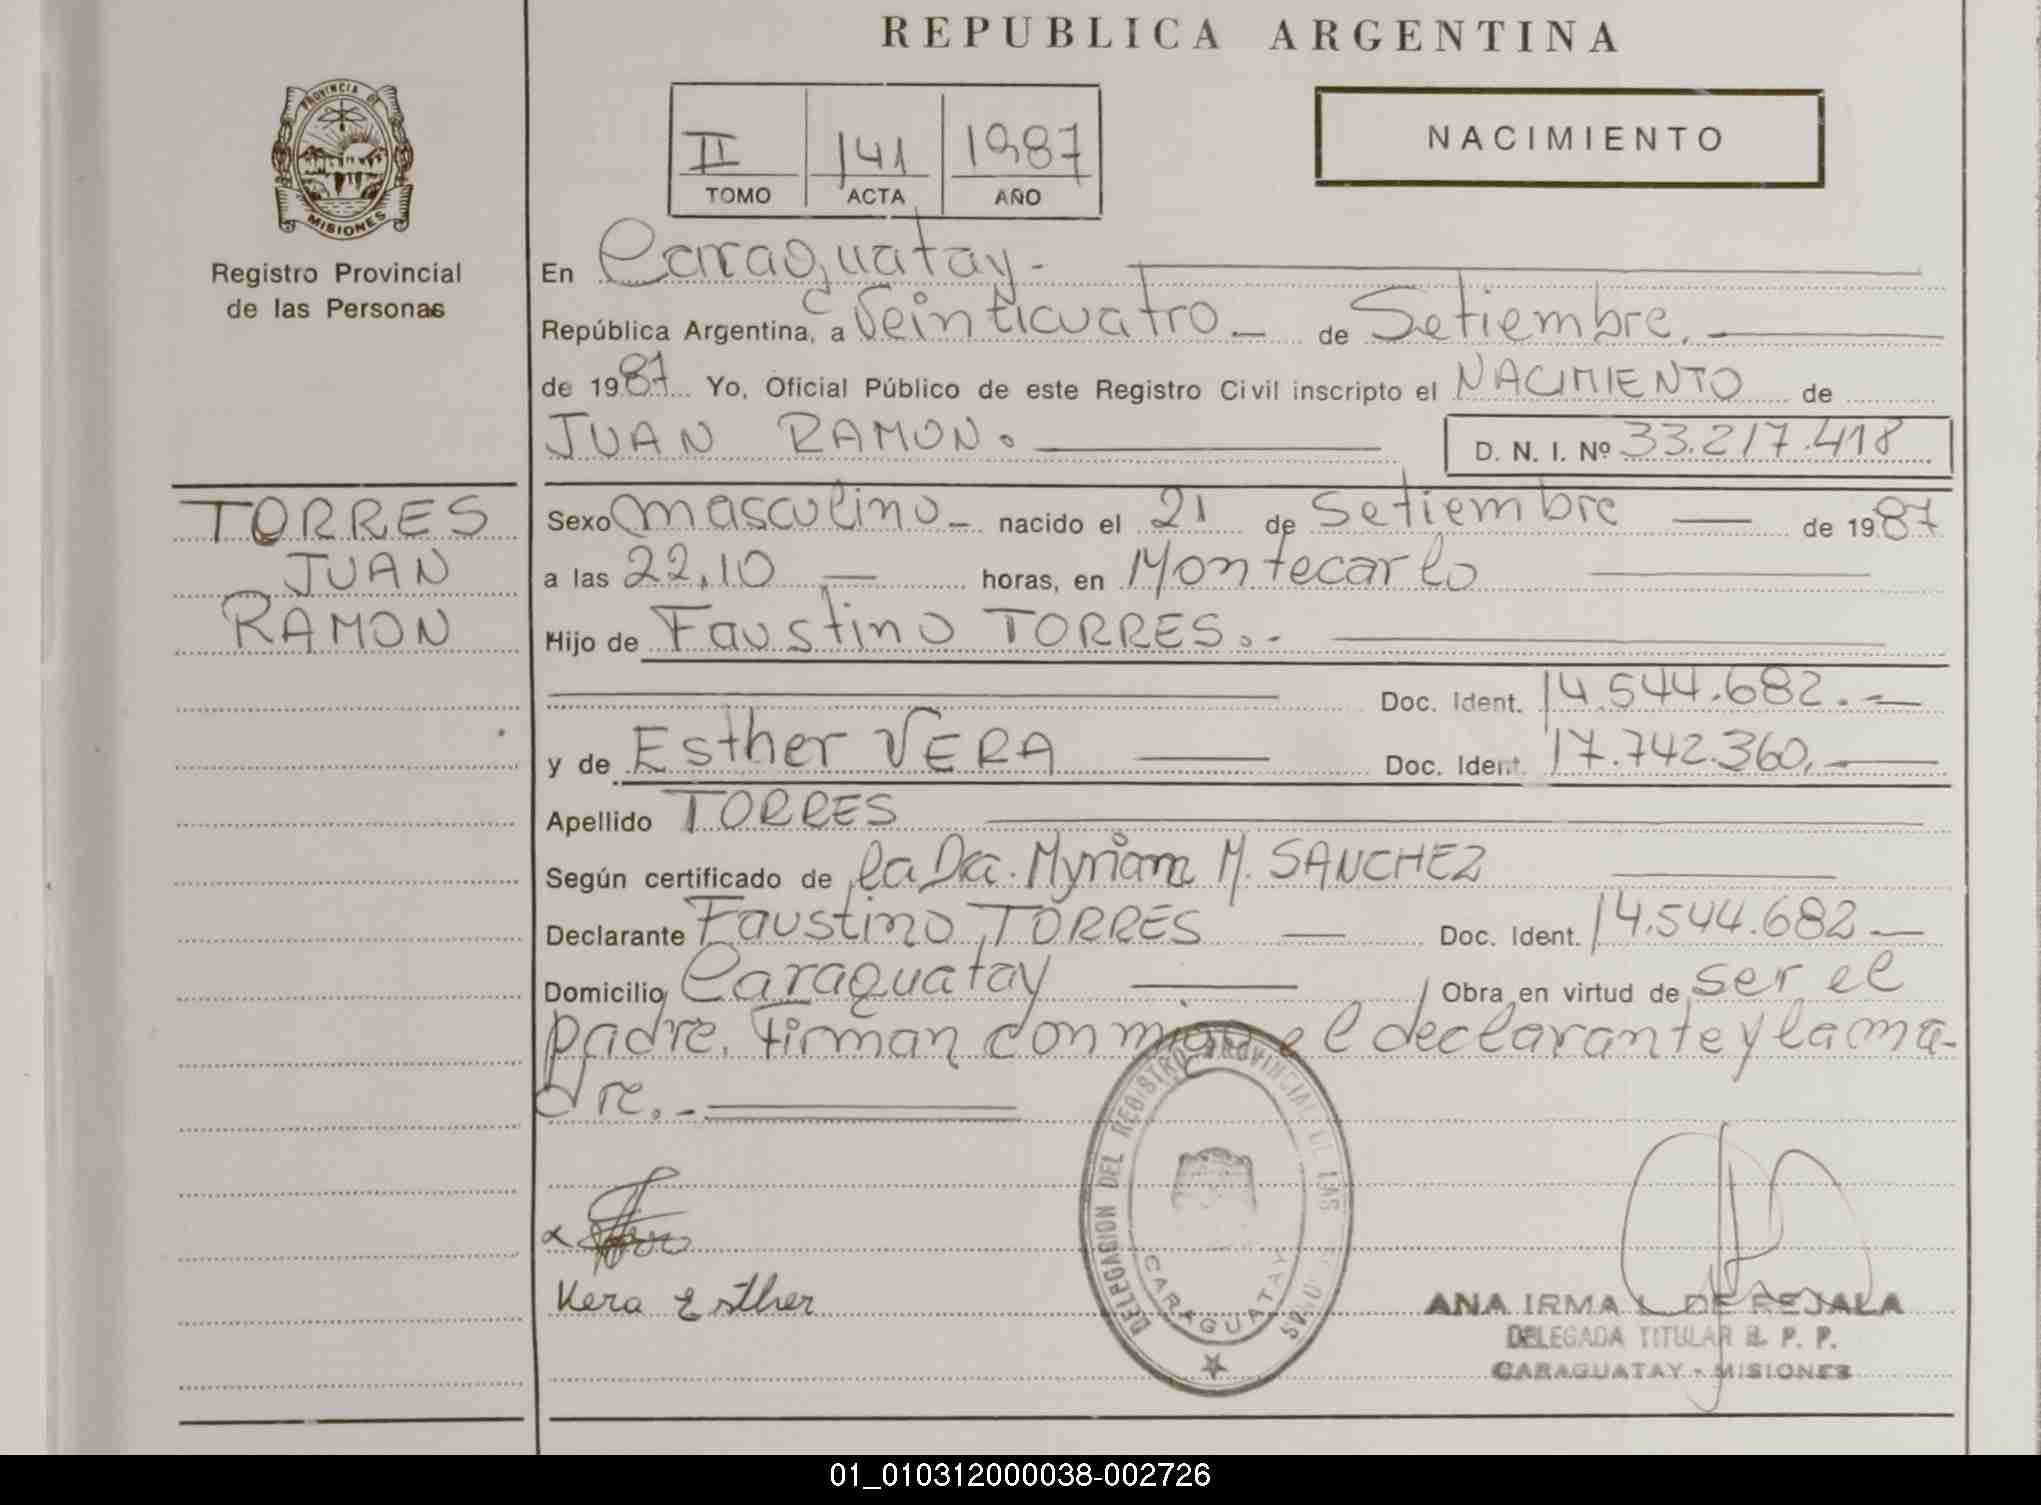 REPUBLICA ARGENTINA
PROVINCIA DE
MISIONES
Registro Provincial
de las Personas
II 141 1987
TOMO ACTA AÑO
NACIMIENTO
En Caraguatay.-
República Argentina, a Veinticuatro - de Setiembre.-
de 1987 Yo, Oficial Público de este Registro Civil inscripto el NACIMIENTO de
JUAN RAMON. D. N. I. Nº 33.217.418
TORRES
JUAN
RAMON
Sexo masculino - nacido el 21 de Setiembre de 1987
a las 22,10 horas, en Montecarlo
Hijo de Faustino TORRES.-
Doc. Ident. 14.544.682.-
y de Esther VERA Doc. Ident. 17.742.360.-
Apellido TORRES
Según certificado de la Dra. Myriam M. SANCHEZ
Declarante Faustino TORRES Doc. Ident. 14.544.682-
Domicilio Caraguatay Obra en virtud de ser el
padre. Firman conmigo el declarante y la ma-
dre.-
Vera Esther
DELEGACION DEL REGISTRO PROVINCIAL DE LAS
CARAGUATAY
ANA IRMA L. DE REJALA
DELEGADA TITULAR R. P. P.
CARAGUATAY - MISIONES
01_010312000038-002726